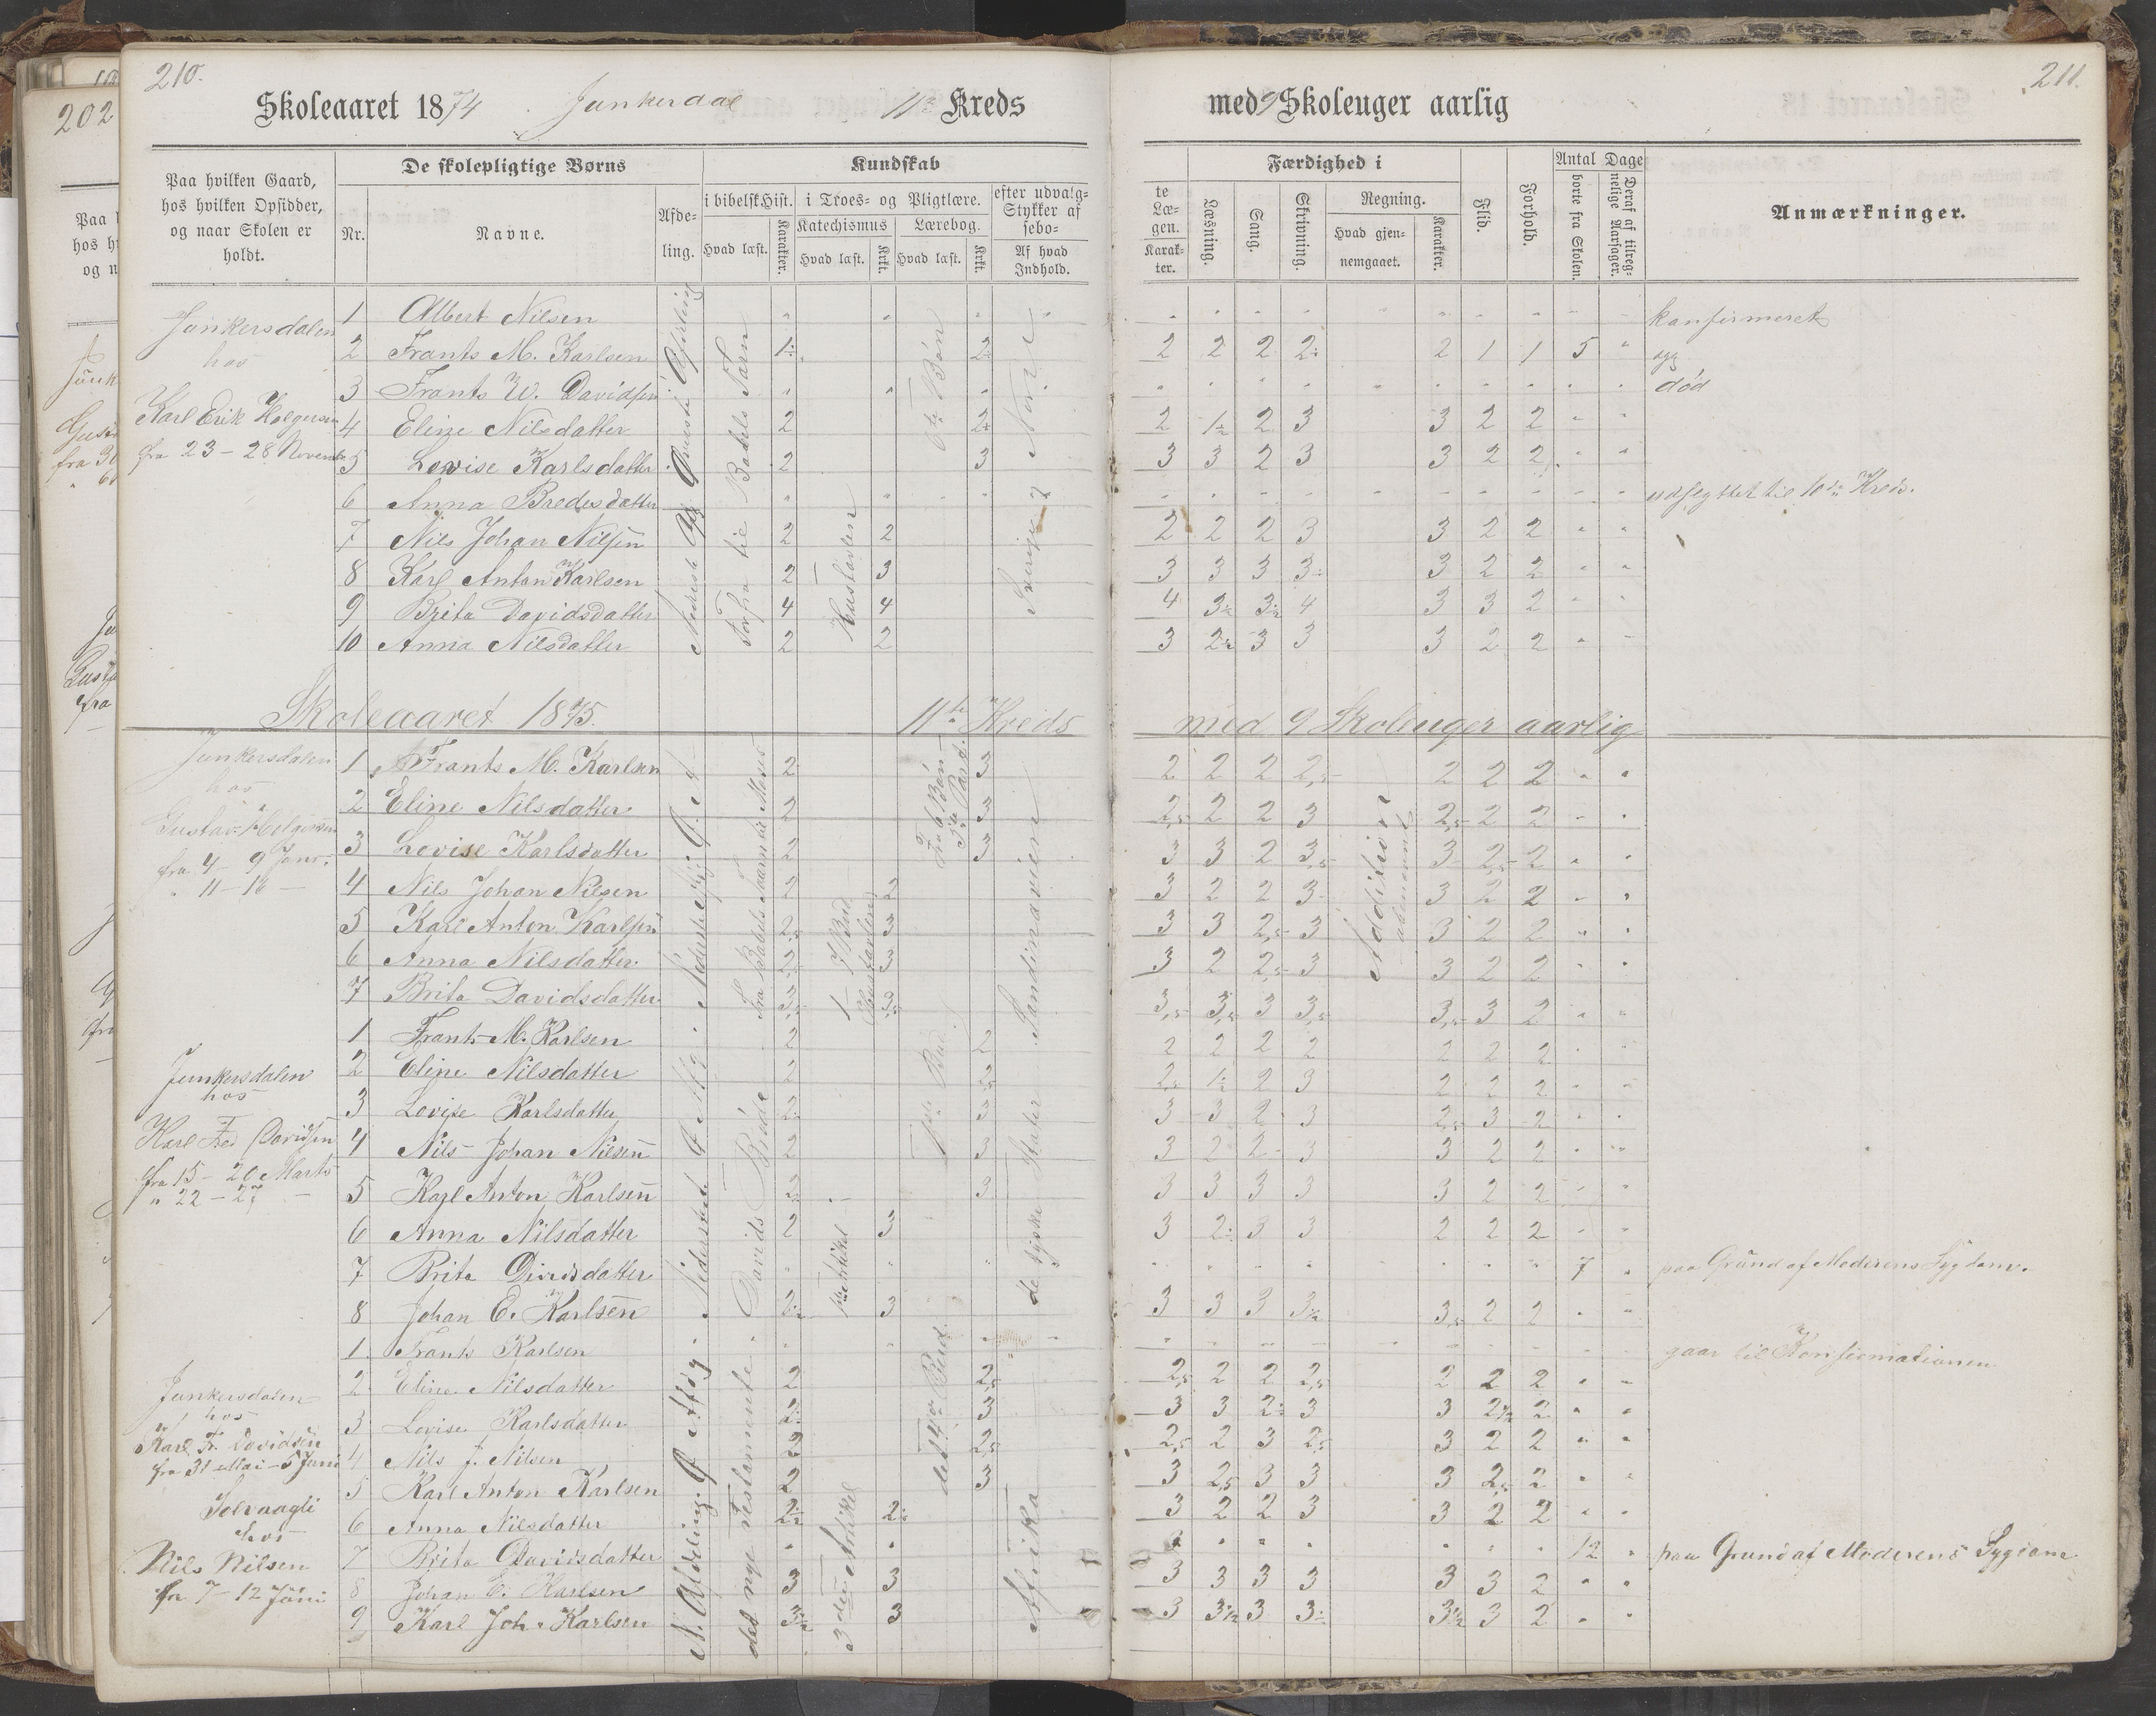 210.
211.
202
Skoleaaret 1874 Junkerdal 11te Kreds
med 9 Skoleuger aarlig
Paa hvilken Gaard,
hos hvilken Opsidder,
og naar Skolen er
holdt.
De skolepligtige Børns
Nr.
Navne.
Afde-
ling.
Kundskab
i bibelsk Hist.
Hvad læst.
Karakter.
i Troes- og Pligtlære.
Katechismus
Hvad læst.
Krkt.
Lærebog.
Hvad læst.
Krkt.
efter udvalg-
Stykker af
sebo-
Af hvad
Indhold.
te
Læ-
gen.
Karak-
ter.
Færdighed i
Læsning.
Sang.
Skrivning.
Regning.
Hvad gjen-
nemgaaet.
Karakter.
Flid.
Forhold.
Antal Dage
borte fra Skolen.
Deraf af tilreg-
nelige Aarsager.
Anmærkninger.
Junkersdalen
hos
Karl Erik Holgersen
fra 23 - 28 Novemb
1 Albert Nilsen " " " " " " " " " " " " " konfirmeret
2 Frants M. Karlsen 1÷ 2÷ 2 2 2 2÷ 2 1 1 5 " syg
3 Frants W. Davidsen " " " " " " " " " " " " død
4 Eline Nilsdatter 2 2÷ 2 1½ 2 3 3 2 2 " "
5 Lovise Karlsdatter 2 3 3 3 2 3 3 2 2 " "
6 Anna Bredesdatter " " " " " " " " " " " " udflyttet til 10de Kreds.
7 Nils Johan Nilsen 2 2 2 2 2 3 3 2 2 " "
8 Karl Anton Karlsen 2 3 3 3 3 3÷ 3 2 2 " "
9 Brita Davidsdatter 4 4 4 3½ 3½ 4 3 3 2 " "
10 Anna Nilsdatter 2 2 3 2½ 3 3 3 2 2 " "
Forfra til Babels Taarn
Hustavlen
6te Bøn
Sverige og Norge
Skoleaaret 1875. 11te Kreds med 9 Skoleuger aarlig
Junkersdalen
hos
Gustav Helgesen
fra 4 - 9 Janr.
" 11 - 16 -
1 Frants M. Karlsen 2 3 2 2 2 2,5 2 2 2 " "
2 Eline Nilsdatter 2 3 2,5 2 2 3 2,5 2 2 " "
3 Lovise Karlsdatter 2 3 3 3 2 3,5 3 2,5 2 " "
4 Nils Johan Nilsen 2 2 3 2 2 3 3 2 2 " "
5 Karl Anton Karlsen 2÷ 3 3 3 2,5 3 3 2 2 " "
6 Anna Nilsdatter 2÷ 3 3 2 2,5 3 3 2 2 " "
7 Brita Davidsdatter 3,5 3÷ 3,5 3,5 3 3,5 3,5 3 2 " "
Fra Babels Taarn til Moses
Hustavlen
Skandinavien
Addition
Junkersdalen
hos
Karl Fr. Davidsen
fra 15 - 20 Marts
" 22 - 27 -
1 Frants M. Karlsen 2 2 2 2 2 2 2 2 2 " "
2 Eline Nilsdatter 2 2÷ 2,5 1½ 2 3 2 2 2 " "
3 Lovise Karlsdatter 2÷ 3 3 3 2 3 2,5 3 2 " "
4 Nils Johan Nilsen 2 3 3 2 2 3 3 2 2 " "
5 Karl Anton Karlsen 2÷ 3 3 3 3 3 3 2 2 " "
6 Anna Nilsdatter 2 3 3 2÷ 3 3 2 2 2 " "
7 Brita Davidsdatter " " " " " " " " " " 7 " paa Grund af Moderens Sygdom.
8 Johan E. Karlsen 2½ 3 3 3 3 3½ 3,5 2 2 " "
Davids Brøde
1ste Artikel
1ste Bud
de tyske Stater
Junkersdalen
hos
Karl Fr. Davidsen
fra 31 Mai - 5 Juni
Solvaagli
hos
Nils Nilsen
fra 7 - 12 Juni
1 Frants Karlsen " " " " " " " " " " " gaar til Konfirmationen
2 Eline Nilsdatter 2 2,5 2,5 2 2 2,5 2 2 2 " "
3 Lovise Karlsdatter 2÷ 3 3 3 2÷ 3 3 2½ 2 " "
4 Nils J. Nilsen 2 2,5 2,5 2 3 2,5 3 2 2 " "
5 Karl Anton Karlsen 2 3 3 2,5 3 3 3 2,5 2 " "
6 Anna Nilsdatter 2½ 2÷ 3 2 2 3 3 2 2 " "
7 Brita Davidsdatter " " " " " " " " 12 " paa Grund af Moderens Sygdom
8 Johan E. Karlsen 3 3 3 3 3 3 3 3 2 " "
9 Karl Joh. Karlsen 3½ 3 3 3½ 3 3÷ 3½ 3 2 " "
det nye Testamente
3die Artikel
det 4de Bud.
Afrika